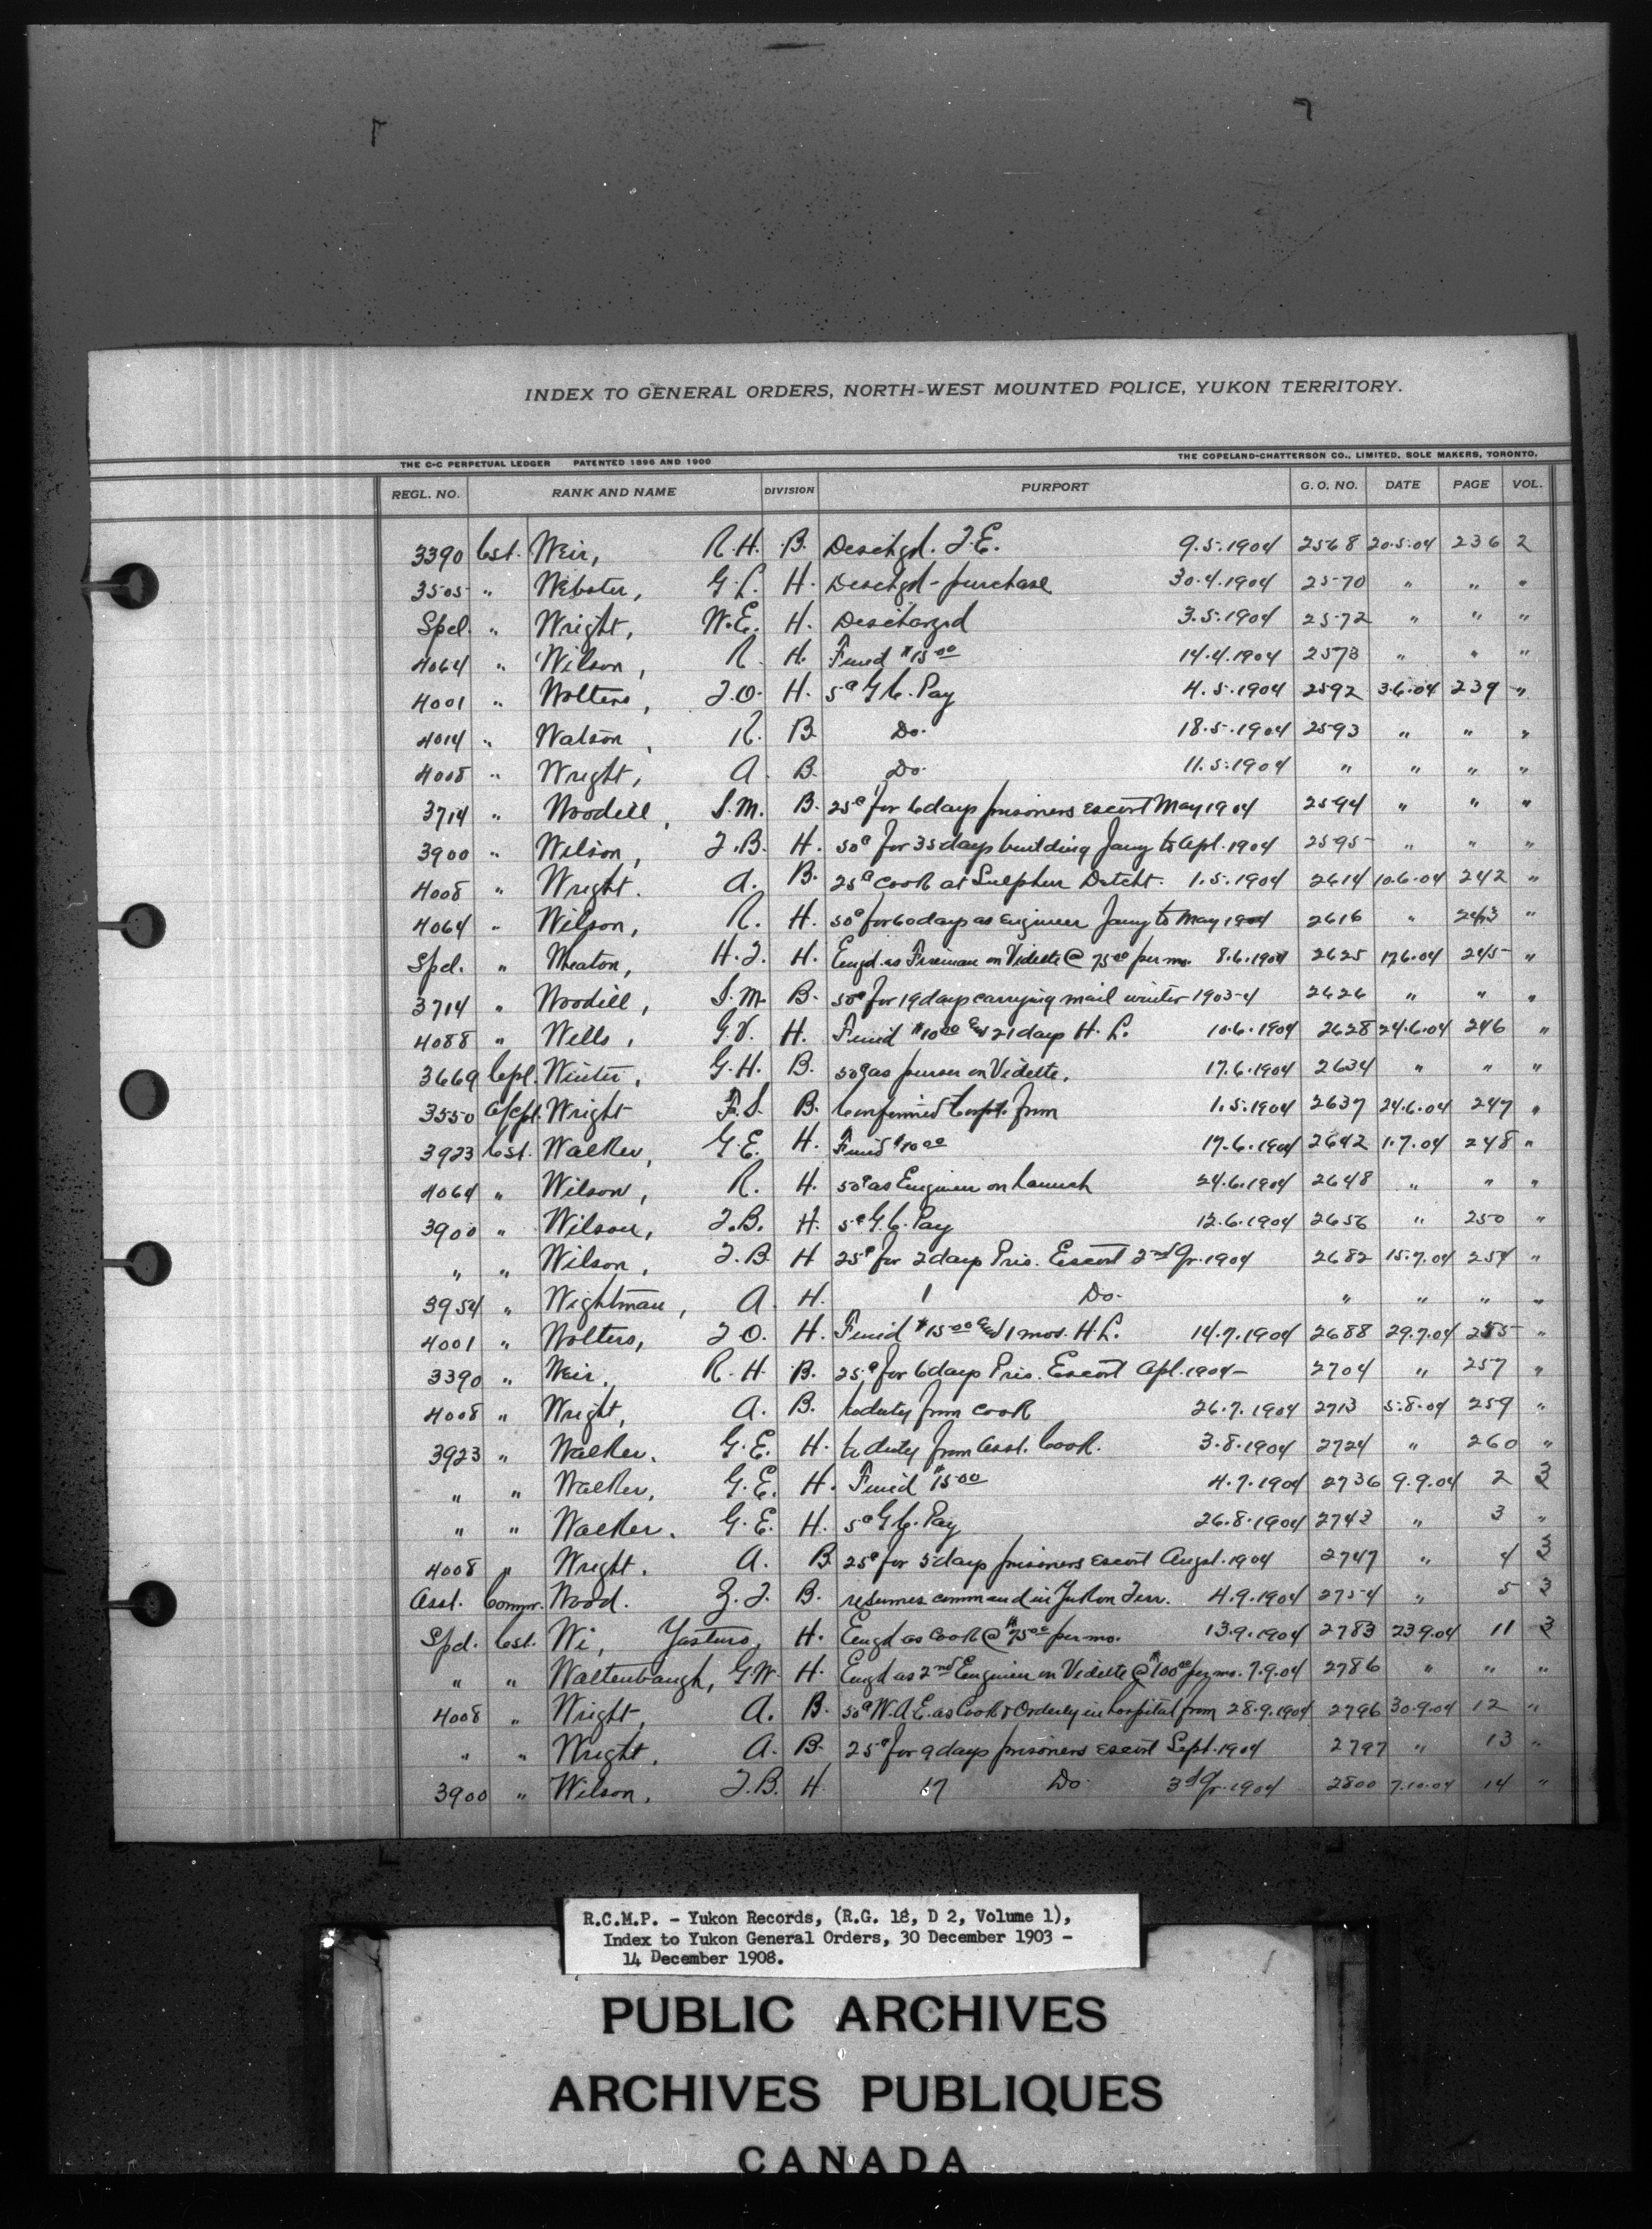 INDEX TO GENERAL ORDERS, NORTH-WEST MOUNTED POLICE, YUKON TERRITORY.
THE C-C PERPETUAL LEDGER PATENTED 1896 AND 1900 THE COPELAND-CHATTERSON CO., LIMITED, SOLE MAKERS, TORONTO.
REGL. NO. RANK AND NAME DIVISION PURPORT G. O. NO. DATE PAGE VOL.
3390 Cst. Weir, R.H. B. Deschgd. T.E. 9.5.1904 2568 20.5.04 236 2
3505 " Webster, G.L. H. Deschgd - purchase 30.4.1904 2570 " " "
Spcl. " Wright, W.E. H. Descharged 3.5.1904 2572 " " "
4064 " Wilson, R. H. Fined $15.00 14.4.1904 2573 " " "
4001 " Wolters, J.O. H. 5¢ G.C. Pay 4.5.1904 2592 3.6.04 239 "
4014 " Watson, R. B. Do. 18.5.1904 2593 " " "
4008 " Wright, A. B. Do. 11.5.1904 " " " "
3714 " Woodill, S.M. B. 25¢ for 6 days prisoners escort May 1904 2594 " " "
3900 " Wilson, J.B. H. 50¢ for 35 days building Jany to Apl. 1904 2595 " " "
4008 " Wright. A. B. 25¢ cook at Sulphur Detcht. 1.5.1904 2614 10.6.04 242 "
4064 " Wilson, R. H. 50¢ for 60 days as engineer Jany to May 1904 2616 " 243 "
Spcl. " Wheaton, H.J. H. Engd. as Fireman on Vidette @ 75.00 per mo. 8.6.1904 2625 17.6.04 245 "
3714 " Woodill, S.M. B. 50¢ for 19 days carrying mail winter 1903-4 2626 " " "
4088 " Wells, G.V. H. Fined $10.00 and 21 days H.L. 10.6.1904 2628 24.6.04 246 "
3669 Cpl. Winter, G.H. B. 50¢ as purser on Vidette. 17.6.1904 2634 " " "
3550 A/Cpl. Wright F.S. B. Confirmed Corpl. from 1.5.1904 2637 24.6.04 247 "
3923 Cst. Walker, G.E. H. Fined $10.00 17.6.1904 2642 1.7.04 248 "
4064 " Wilson, R. H. 50¢ as Engineer on launch 24.6.1904 2648 " " "
3900 " Wilson, J.B. H. 5¢ G.C. Pay 12.6.1904 2656 " 250 "
" " Wilson, J.B. H 25¢ for 2 days Pris. Escort 2nd Qr. 1904 2682 15.7.04 254 "
3954 " Wightman, A. H. 1 Do. " " " "
4001 " Wolters, J.O. H. Fined $15.00 and 1 mos. H.L. 14.7.1904 2688 29.7.04 255 "
3390 " Weir, R.H. B. 25¢ for 6 days Pris. Escort Apl. 1904 - 2704 " 257 "
4008 " Wright, A. B. to duty from cook 26.7.1904 2713 5.8.04 259 "
3923 " Walker. G.E. H. to duty from asst. Cook. 3.8.1904 2724 " 260 "
" " Walker, G.E. H. Fined $15.00 4.7.1904 2736 9.9.04 2 3
" " Walker. G.E. H. 5¢ G.C. Pay 26.8.1904 2743 " 3 "
4008 " Wright. A. B. 25¢ for 5 days prisoners escort Augst. 1904 2747 " 4 3
Asst. Commr. Wood. Z.T. B. resumes command in Yukon Terr. 4.9.1904 2754 " 5 3
Spcl. Cst. Wi, Yasturo, H. Engd as cook @ $75.00 per mo. 13.9.1904 2783 23.9.04 11 3
" " Waltenbaugh, G.W. H. Engd as 2nd Engineer on Vidette @ $100.00 per mo. 7.9.04 2786 " " "
4008 " Wright, A. B. 50¢ W.A.E. as Cook & Orderly in hospital from 28.9.1904 2796 30.9.04 12 "
" " Wright, A. B. 25¢ for 9 days prisoners escort Sept. 1904 2797 " 13 "
3900 " Wilson, J.B. H. 17 Do. 3rd Qr. 1904 2800 7.10.04 14 "
R.C.M.P. - Yukon Records, (R.G. 18, D 2, Volume 1),
Index to Yukon General Orders, 30 December 1903 -
14 December 1908.
PUBLIC ARCHIVES
ARCHIVES PUBLIQUES
CANADA